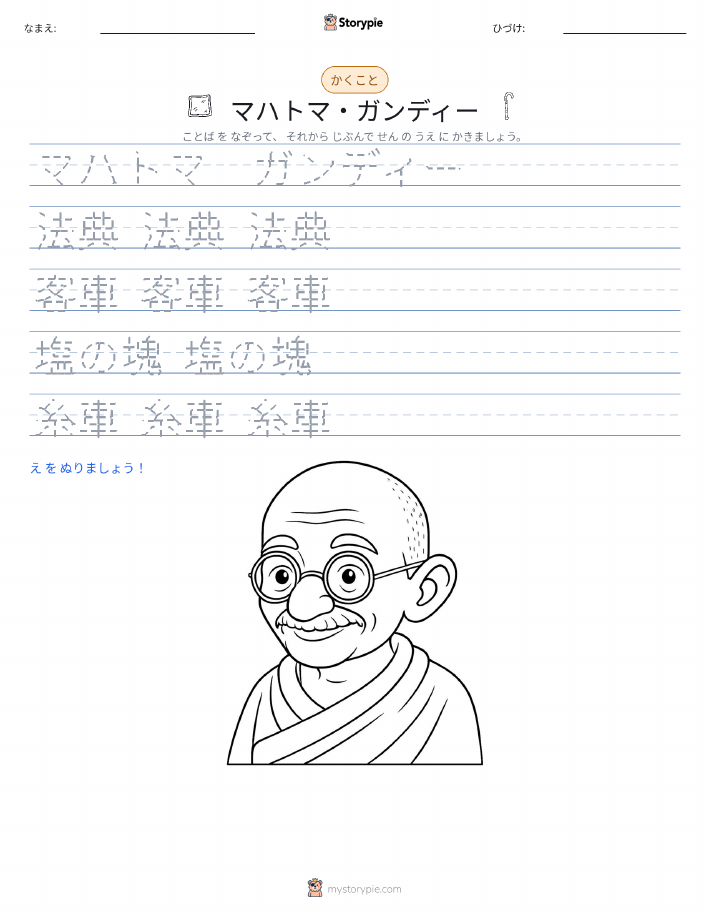 なまえ: Storypie ひづけ:
かくこと
マハトマ・ガンディー
ことば を なぞって、 それから じぶんで せん の うえ に かきましょう。
マハトマ ガンディー
法典 法典 法典
客車 客車 客車
塩の塊 塩の塊
糸車 糸車 糸車
え を ぬりましょう！
mystorypie.com